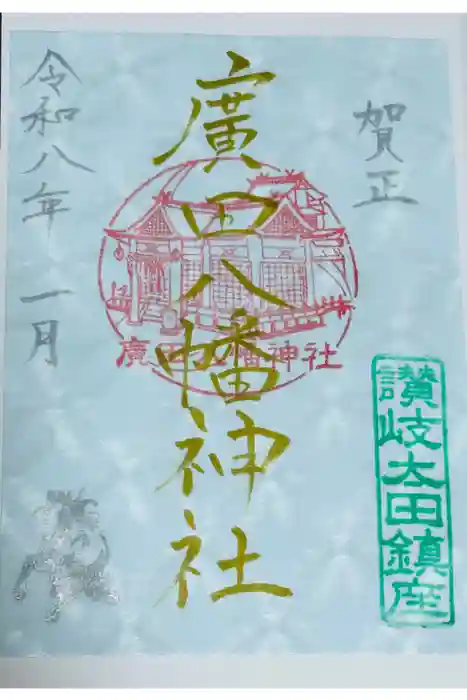 賀正
廣田八幡神社
令和八年 一月
廣田八幡神社
讃岐太田鎮座